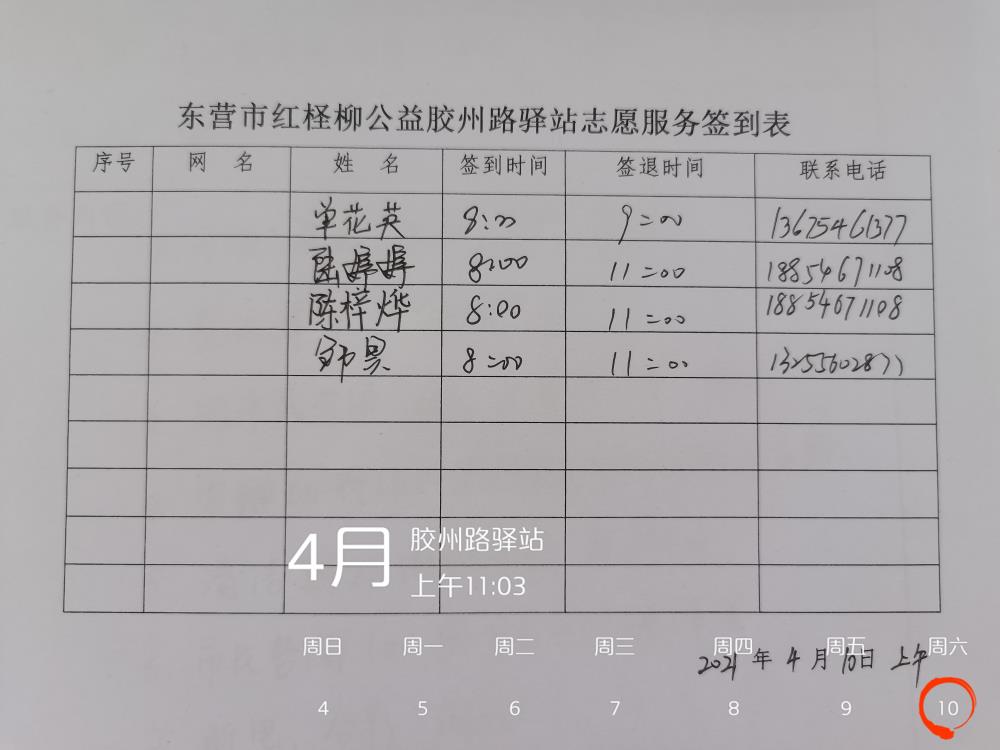 东营市红柽柳公益胶州路驿站志愿服务签到表
序号 网 名 姓 名 签到时间 签退时间 联系电话
单花英 8:00 9:00 13675461377
陈婷婷 8:00 11:00 18854671108
陈梓烨 8:00 11:00 18854671108
昊 8:00 11:00 13255602877
4月 胶州路驿站
上午11:03
周日 周一 周二 周三 周四 周五 周六
2021 年 4 月 10日 上午
4 5 6 7 8 9 10